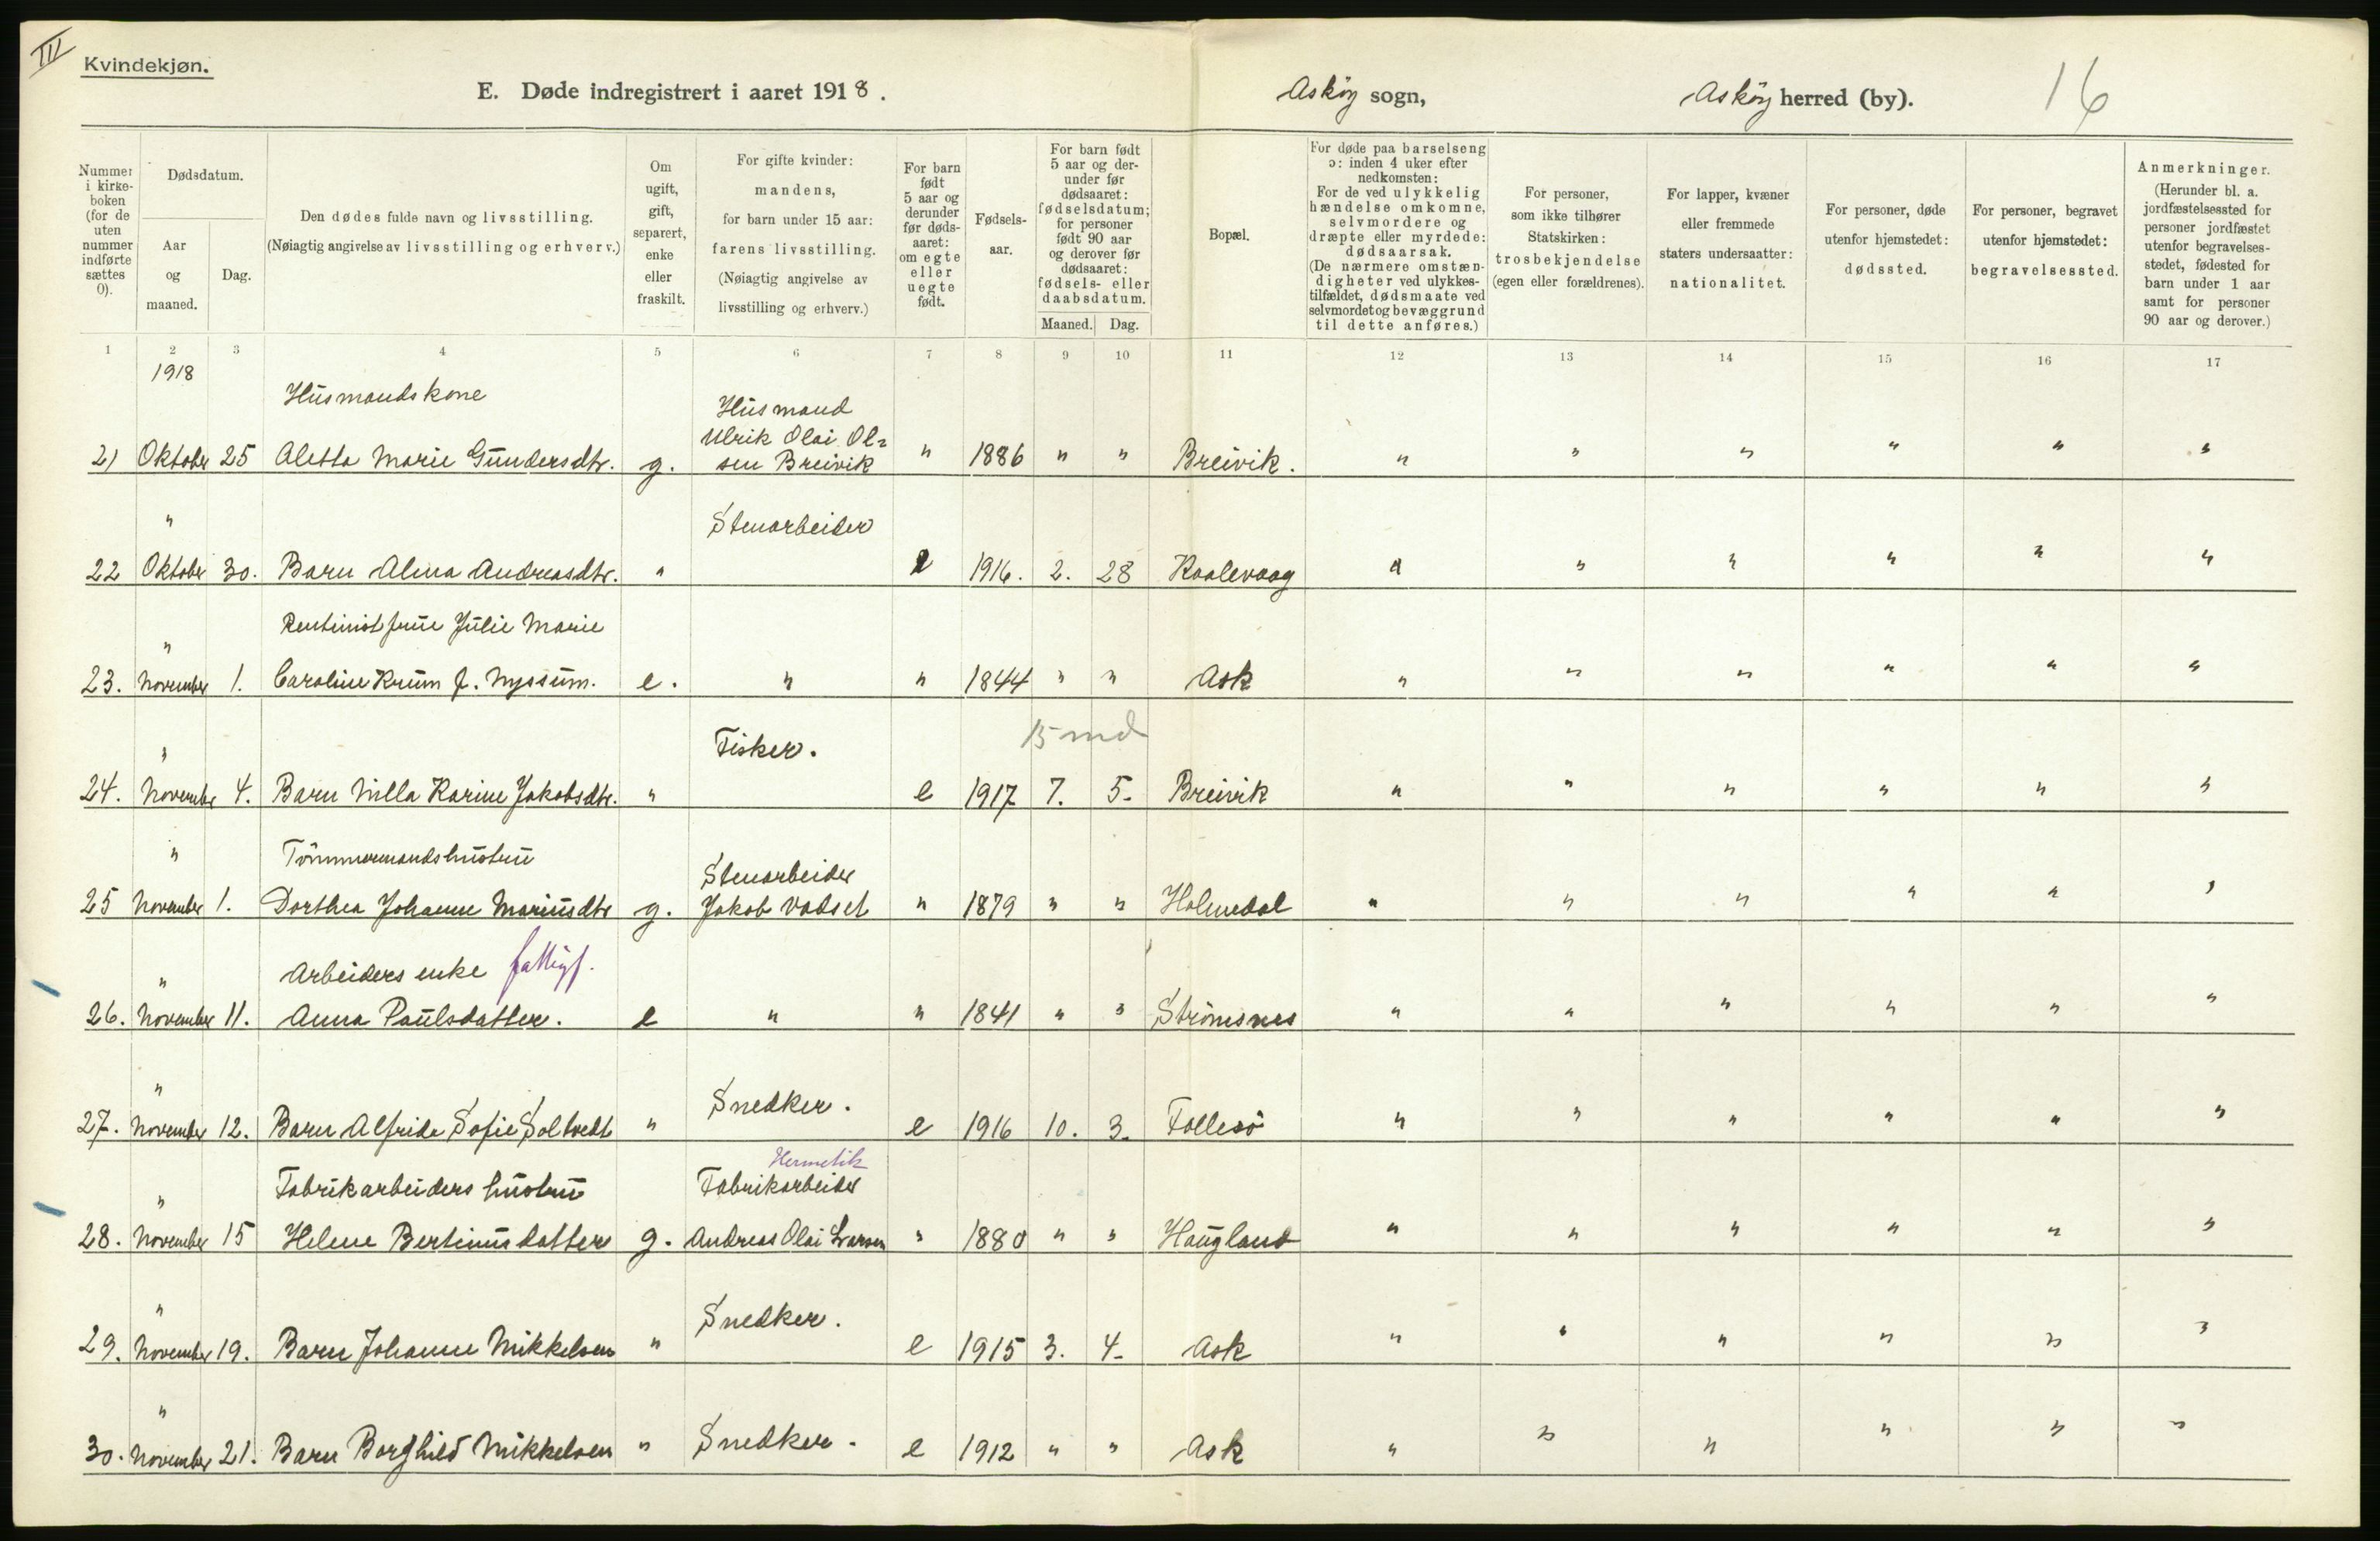 III
Kvindekjøn.
E. Døde indregistrert i aaret 1918.
Askøy sogn,
Askøy herred (by).
16
Nummer i kirke-boken (for de uten nummer indførte sættes 0).
Dødsdatum.
Aar og maaned.
Dag.
Den dødes fulde navn og livsstilling.
(Nøiagtig angivelse av livsstilling og erhverv.)
Om ugift, gift, separert, enke eller fraskilt.
For gifte kvinder: mandens, for barn under 15 aar: farens livsstilling. (Nøiagtig angivelse av livsstilling og erhverv.)
For barn født 5 aar og derunder før døds-aaret: om egte eller uegte født.
Fødsels-aar.
For barn født 5 aar og der-under før dødsaaret: fødselsdatum; for personer født 90 aar og derover før dødsaaret: fødsels- eller daabsdatum.
Maaned.
Dag.
Bopæl.
For døde paa barselseng ɔ: inden 4 uker efter nedkomsten: For de ved ulykkelig hændelse omkomne, selvmordere og dræpte eller myrdede: dødsaarsak. (De nærmere omstæn-digheter ved ulykkes-tilfældet, dødsmaate ved selvmordet og bevæggrund til dette anføres.)
For personer, som ikke tilhører Statskirken: trosbekjendelse (egen eller forældrenes).
For lapper, kvæner eller fremmede staters undersaatter: nationalitet.
For personer, døde utenfor hjemstedet: dødssted.
For personer, begravet utenfor hjemstedet: begravelsessted.
Anmerkninger. (Herunder bl. a. jordfæstelsessted for personer jordfæstet utenfor begravelses-stedet, fødested for barn under 1 aar samt for personer 90 aar og derover.)
1 2 3 4 5 6 7 8 9 10 11 12 13 14 15 16 17
1918
Husmandskone
Husmand
Ulrik Olai Ol=
21 Oktober 25 Aletta Marie Gundersdtr. g. sen Breivik " 1886 " " Breivik. " " " " " "
" Stenarbeider
22 Oktober 30. Barn Alma Andreasdtr. " e 1916. 2. 28 Kaalevaag " " " " " "
Rentinistfrue Julie Marie
"
23. November 1. Caroline Krum f. Nyssum. e. " " 1844 " " Ask " " " " " "
" Fisker. 15 md
24. November 4. Barn Nilla Karine Jakobsdtr. " e 1917 7. 5. Breivik " " " " " "
" Tømmermandshustru
Stenarbeider
25 November 1. Dorthea Johanne Mariusdtr g. Jakob Vadset " 1879 " " Holmedal " " " " " "
" Arbeiders enke fattigf.
26. November 11. Anna Paulsdatter. e " " 1841 " " Strømsnes " " " " " "
" Snedker.
27. November 12. Barn Alfrida Sofie Soltvedt " e 1916 10. 3. Follesø " " " " " "
Hermetik
" Fabrikarbeiders hustru Fabrikarbeider
28. November 15 Helene Bertinusdatter g. Andreas Olai Larsen " 1880 " " Haugland " " " " " "
" Snedker.
29. November 19. Barn Johanne Mikkelsen " e 1915 3. 4. Ask " " " " " "
"
30. November 21. Barn Borghild Mikkelsen " Snedker. e 1912 " " Ask " " " " " "